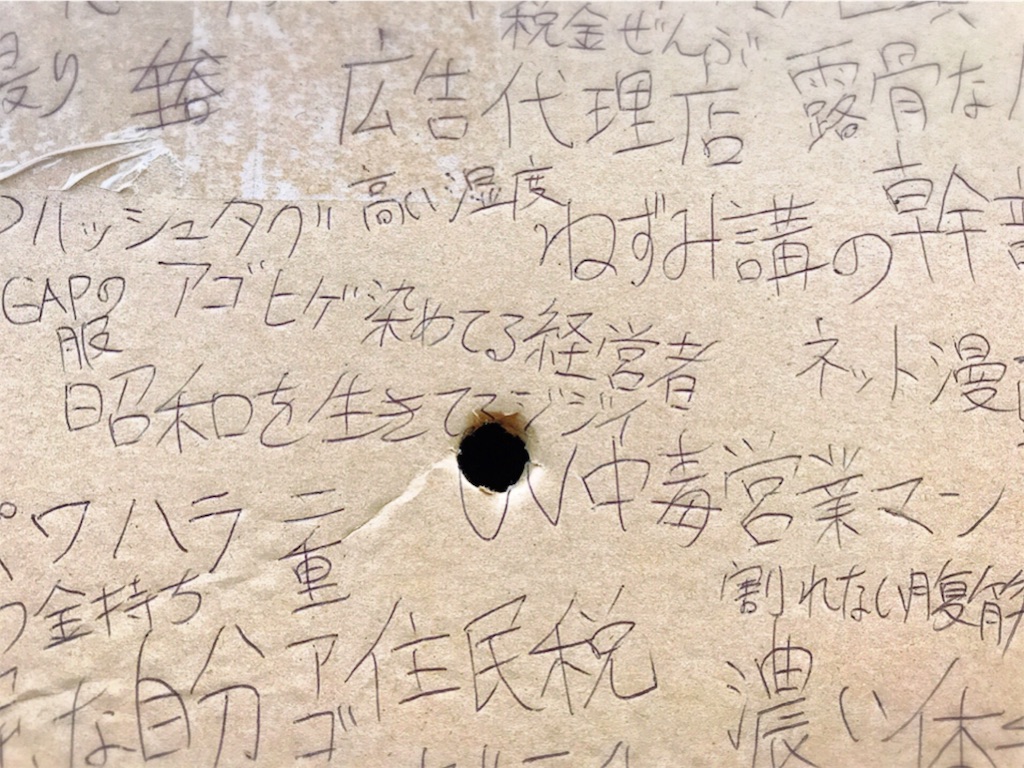 税金ぜんぶ
広告代理店
露骨な
高い湿度
ハッシュタグ
ねずみ講の幹部
GAPの
服
アゴヒゲ染めてる経営者
ネット漫
昭和を生きてるジジイ
中毒営業マン
パワハラ
二
重
アゴ
金持ち
割れない腹筋
な自分
住民税
濃い体